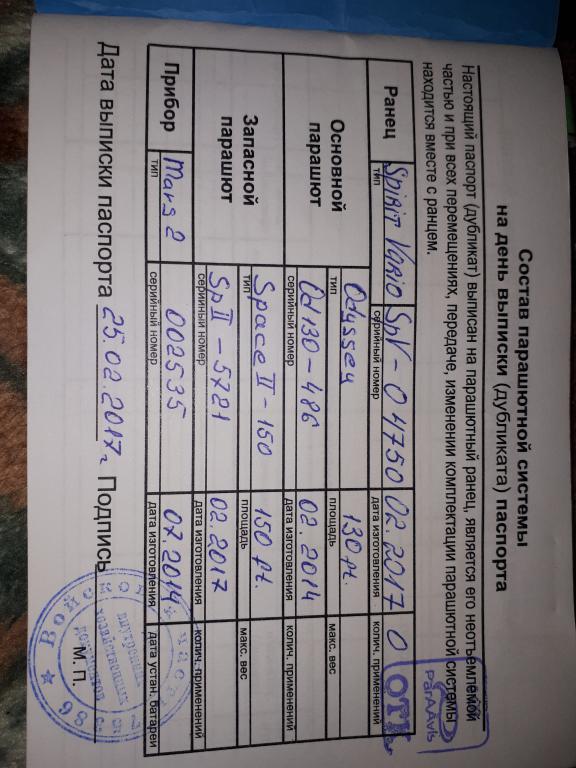 Состав парашютной системы
на день выписки (дубликата) паспорта
Настоящий паспорт (дубликат) выписан на парашютный ранец, является его неотъемлемой
частью и при всех перемещениях, передаче, изменении комплектации парашютной системы
находится вместе с ранцем.
ParAAvis
ОТК
Ранец Spirit Vario SpV-04750 02.2017 0
тип серийный номер дата изготовления колич. применений
Основной парашют
Odyssey 130 ft.
тип площадь макс. вес
Od130-486 02.2014
серийный номер дата изготовления колич. применений
Запасной парашют
Space II-150 150 ft.
тип площадь макс. вес
Sp II-5721 02.2017
серийный номер дата изготовления колич. применений
Прибор Mars 2 002535 07.2014
тип серийный номер дата изготовления дата устан. батареи
Дата выписки паспорта 25.02.2017г Подпись М.П.